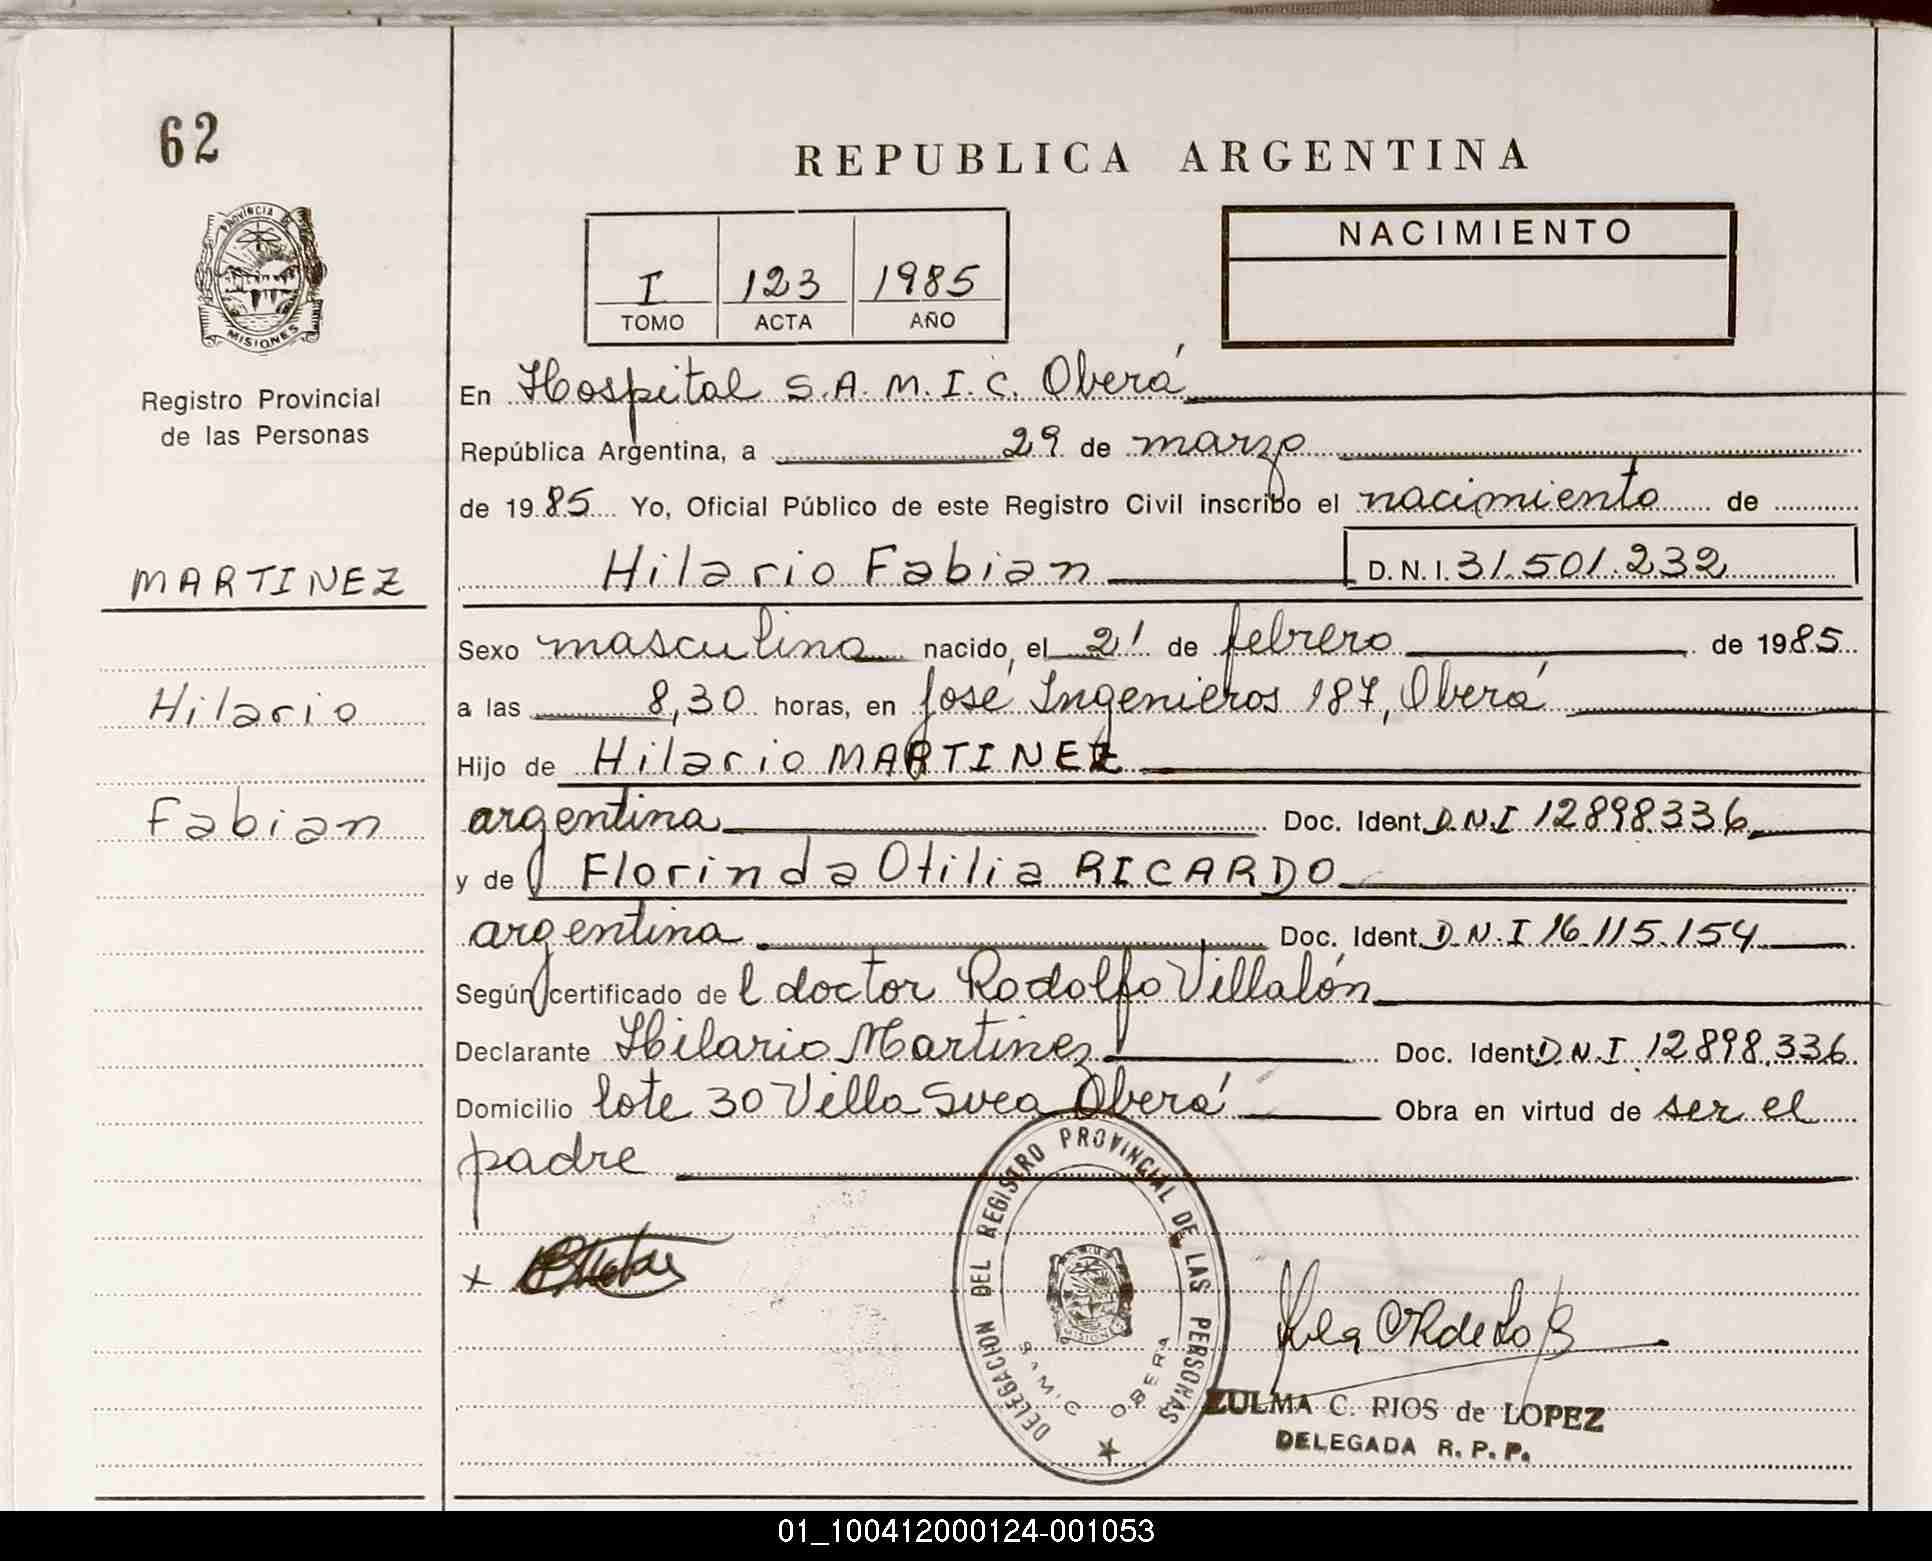 62
REPUBLICA ARGENTINA
PROVINCIA DE
MISIONES
Registro Provincial
de las Personas
I 123 1985
TOMO ACTA AÑO
NACIMIENTO
En Hospital S.A.M.I.C. Oberá
República Argentina, a 29 de marzo
de 1985 Yo, Oficial Público de este Registro Civil inscribo el nacimiento de
Hilario Fabian D.N.I. 31.501.232
MARTINEZ
Hilario
Fabian
Sexo masculino nacido el 21 de febrero de 1985
a las 8,30 horas, en José Ingenieros 187, Oberá
Hijo de Hilario MARTINEZ
argentina Doc. Ident. D.N.I 12898336
y de Florinda Otilia RICARDO
argentina Doc. Ident. D.N.I 16.115.154
Según certificado de l doctor Rodolfo Villalón
Declarante Hilario Martinez Doc. Ident. D.N.I. 12.898.336
Domicilio lote 30 Villa Svea Oberá Obra en virtud de ser el
padre
x
DELEGACION DEL REGISTRO PROVINCIAL DE LAS PERSONAS
MISIONES
SAMIC OBERA
ZULMA C. RIOS de LOPEZ
DELEGADA R. P. P.
01_100412000124-001053